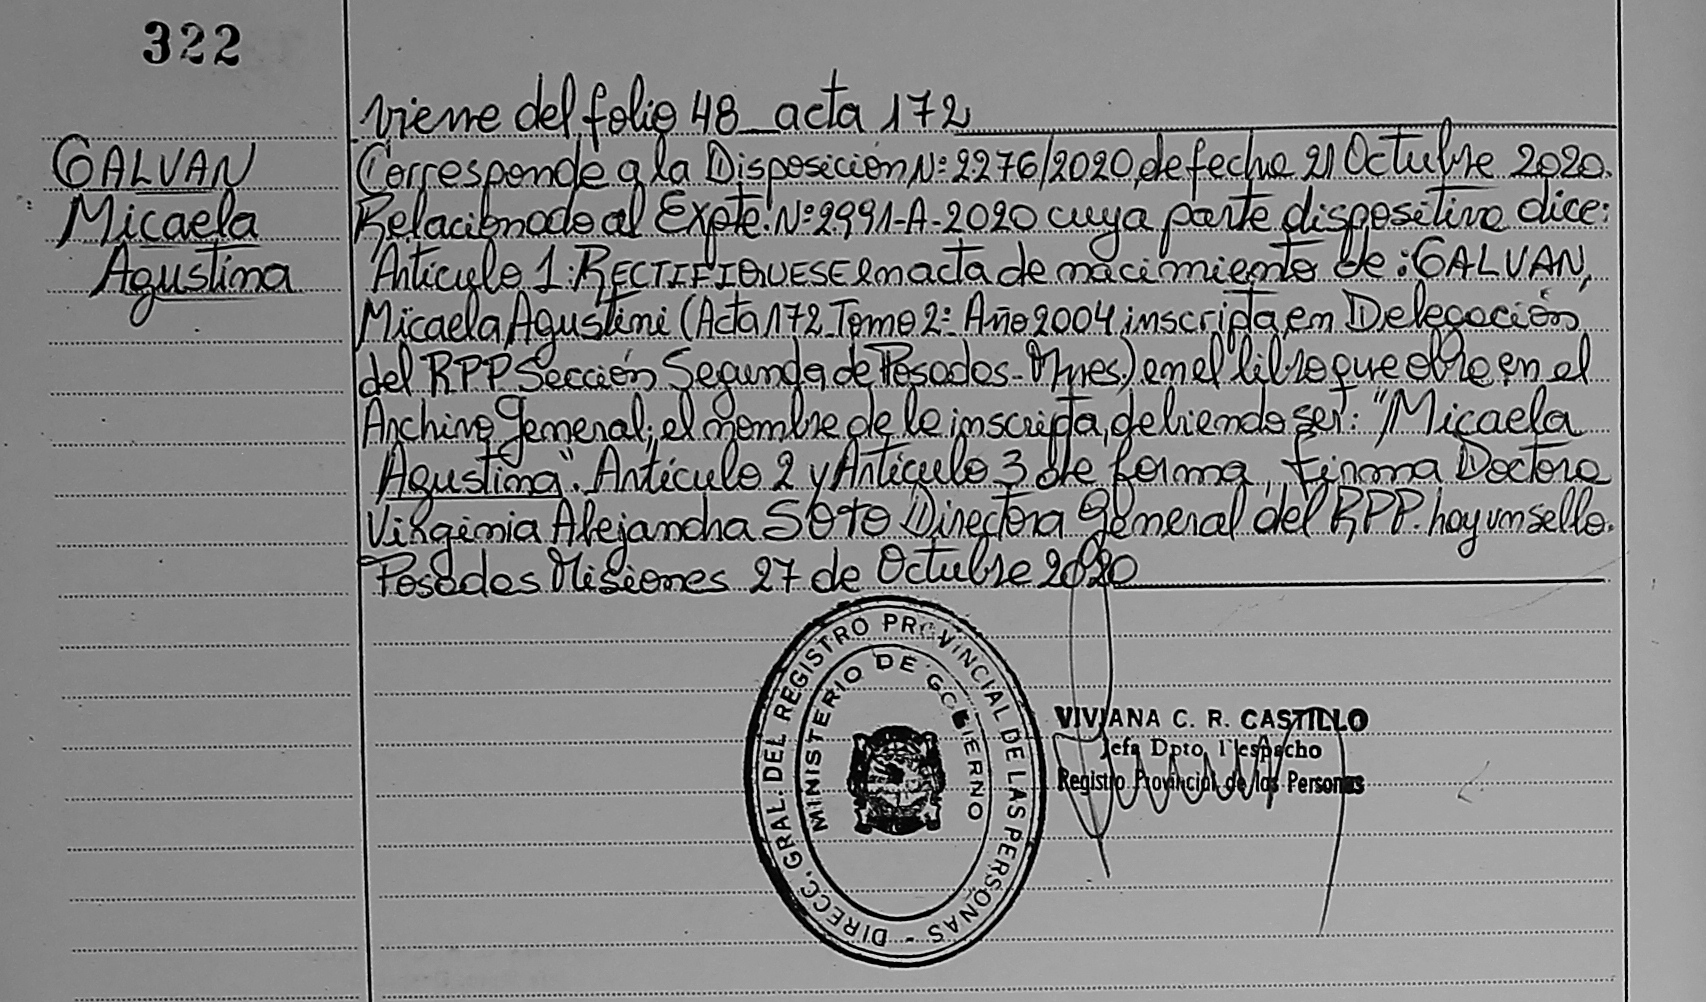 322
viene del folio 48 acta 172
GALVAN
Micaela
Agustina
Corresponde a la Disposición Nº: 2276/2020, de fecha 21 Octubre 2020.
Relacionado al Expte. Nº 2991-A-2020 cuya parte dispositiva dice:
Artículo 1: RECTIFIQUESE en acta de nacimiento de: GALVAN,
Micaela Agustini (Acta 172 Tomo 2º Año 2004, inscripta en Delegación
del RPP Sección Segunda de Posadas - Mnes) en el libro que obra en el
Archivo General; el nombre de la inscripta, debiendo ser: "Micaela
Agustina". Artículo 2 y Artículo 3 de forma, firma Doctora
Virginia Alejandra SOTO Directora General del RPP. hay un sello.
Posadas Misiones 27 de Octubre 2020
DIRECC. GRAL. DEL REGISTRO PROVINCIAL DE LAS PERSONAS -
MINISTERIO DE GOBIERNO
VIVIANA C. R. CASTILLO
Jefa Dpto. Despacho
Registro Provincial de las Personas